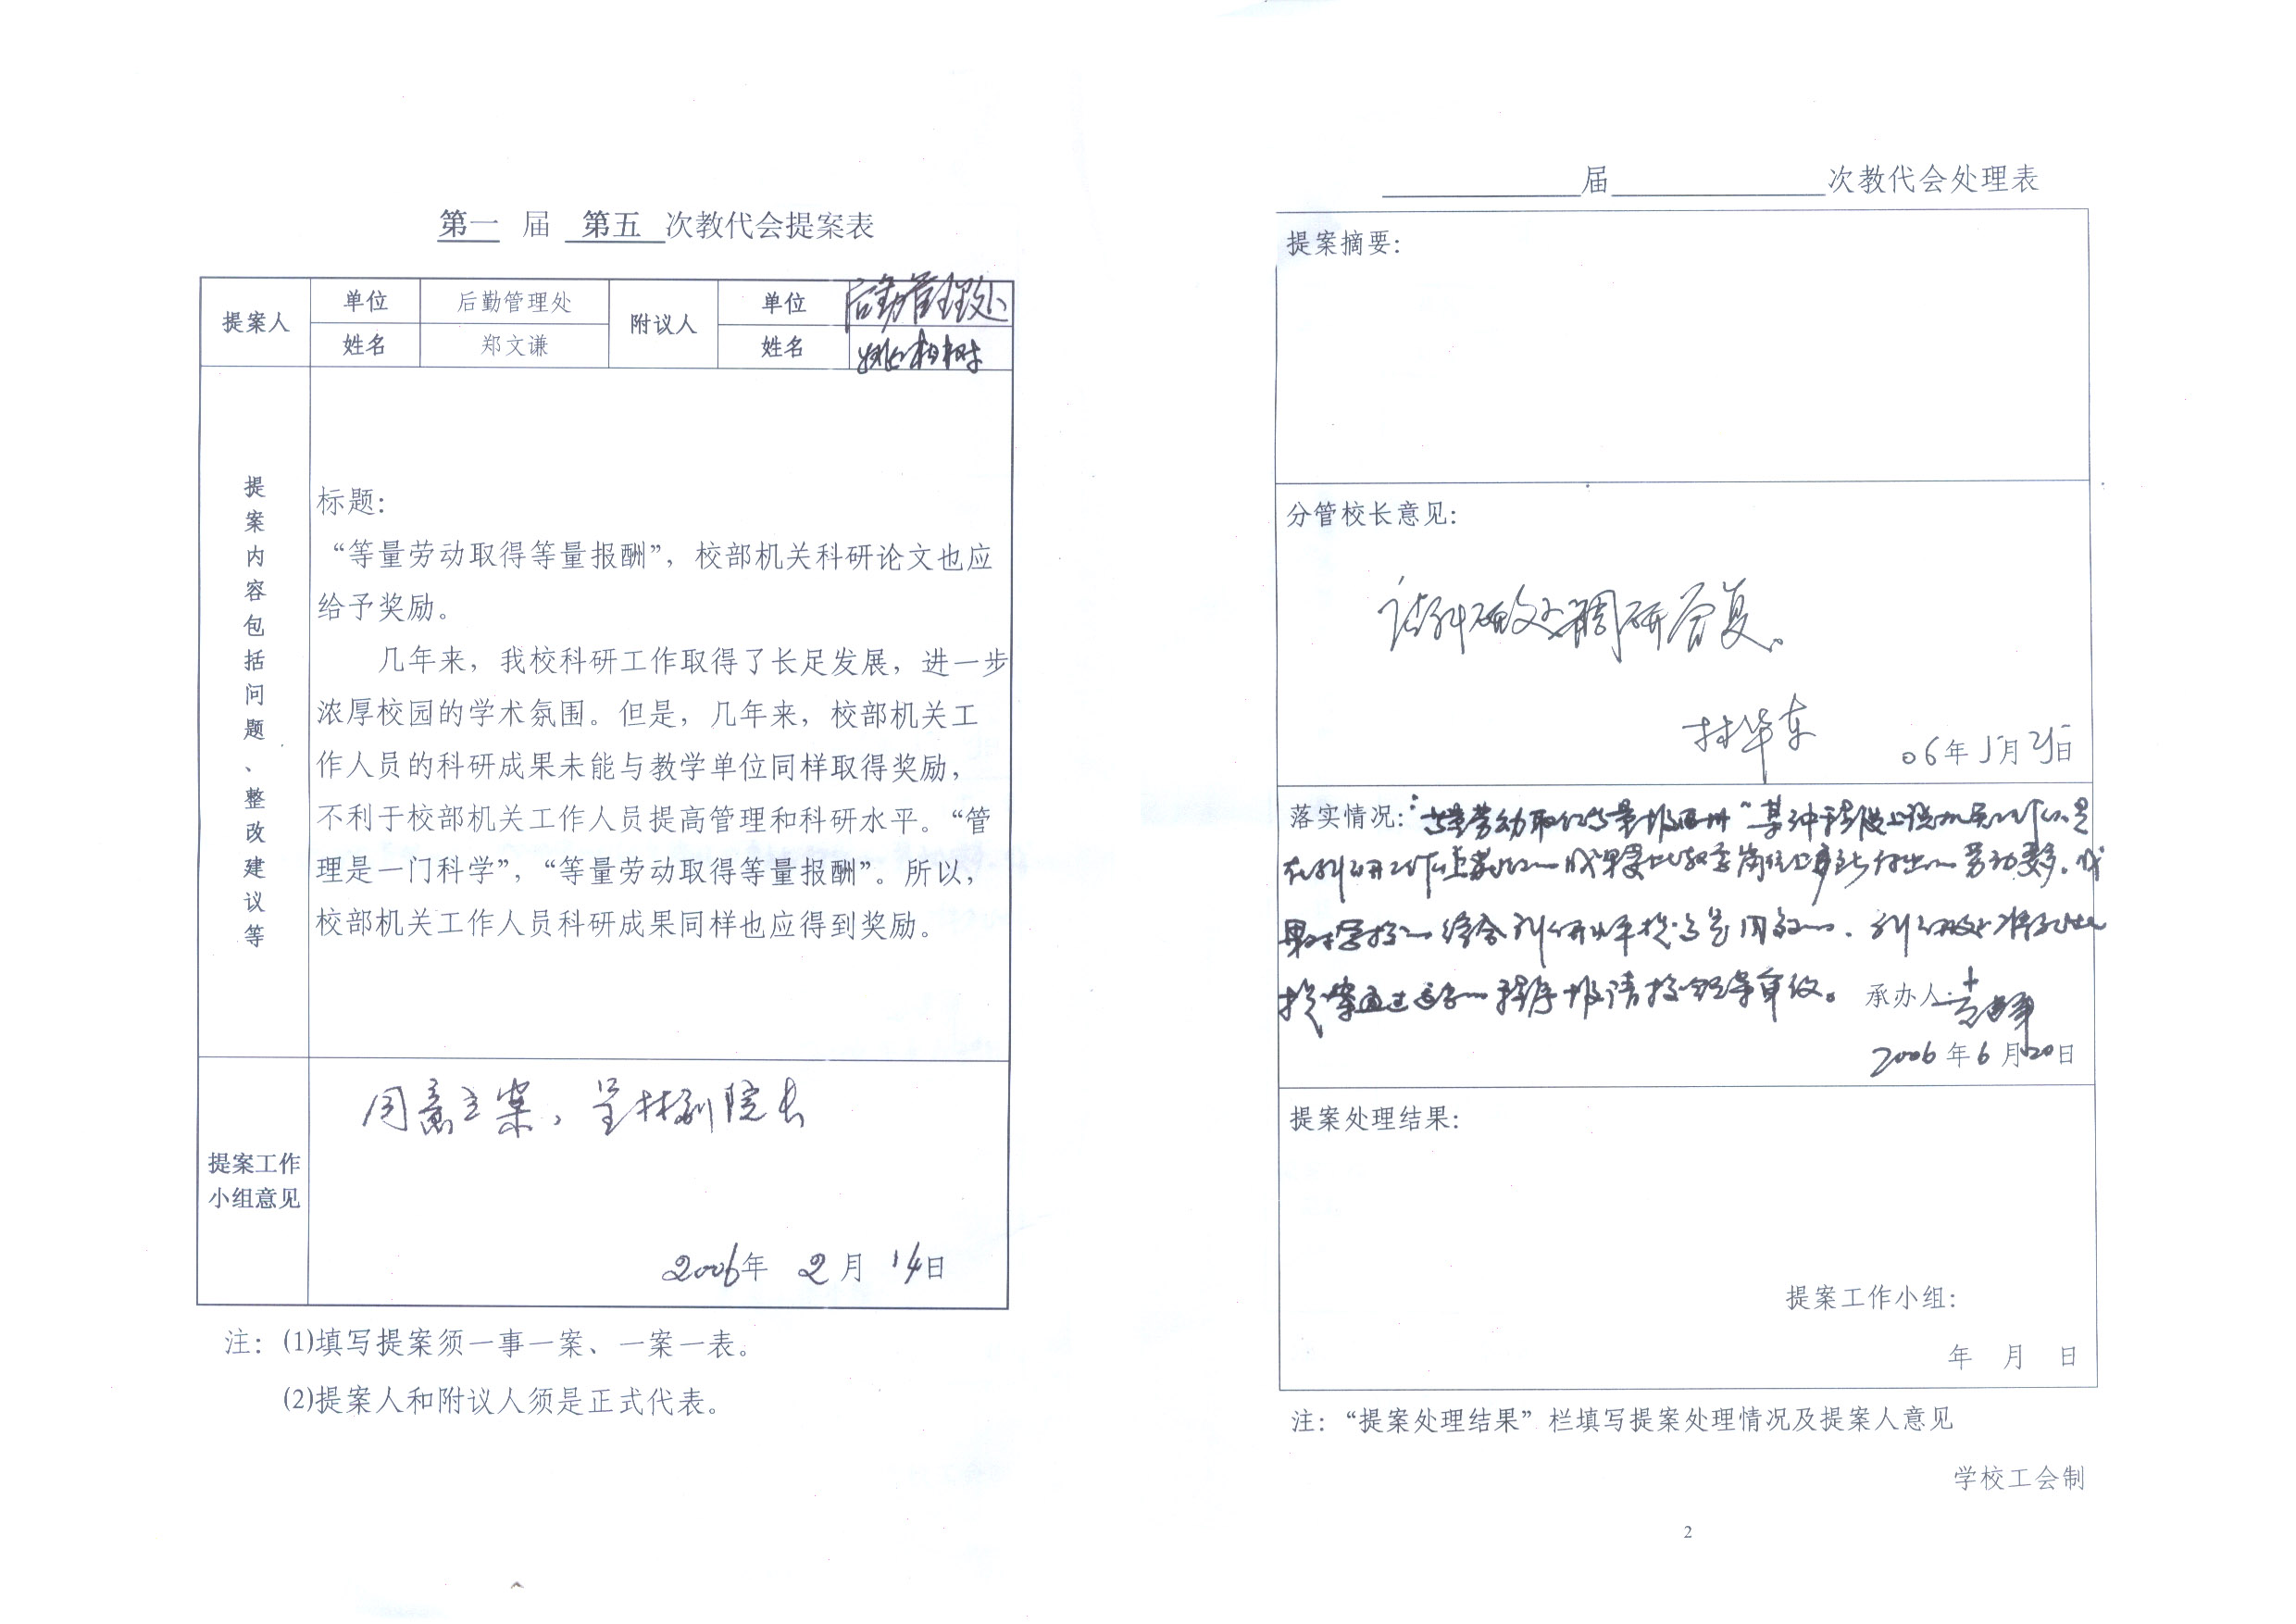 第一 届 第五 次教代会提案表
提案人 单位 后勤管理处 附议人 单位 后勤管理处
姓名 郑文谦 姓名 姚植树
提案内容包括问题、整改建议等
标题：
“等量劳动取得等量报酬”，校部机关科研论文也应
给予奖励。
几年来，我校科研工作取得了长足发展，进一步
浓厚校园的学术氛围。但是，几年来，校部机关工
作人员的科研成果未能与教学单位同样取得奖励，
不利于校部机关工作人员提高管理和科研水平。“管
理是一门科学”，“等量劳动取得等量报酬”。所以，
校部机关工作人员科研成果同样也应得到奖励。
提案工作
小组意见
同意立案，呈林副院长
2006年 2月 14日
注：(1)填写提案须一事一案、一案一表。
(2)提案人和附议人须是正式代表。
届 次教代会处理表
提案摘要：
分管校长意见：
请科研处调研答复。
林华东
06年5月25日
落实情况：“等量劳动取得等量报酬”某种程度上说机关工作人员
在科研工作上获得的成果要比教学岗位上付出的劳动要多，成
果对学校的综合科研水平提高是有用的。科研处将把此
提案通过适当的程序报请校领导审改。 承办人：
2006年6月20日
提案处理结果：
提案工作小组：
年 月 日
注：“提案处理结果”栏填写提案处理情况及提案人意见
学校工会制
2